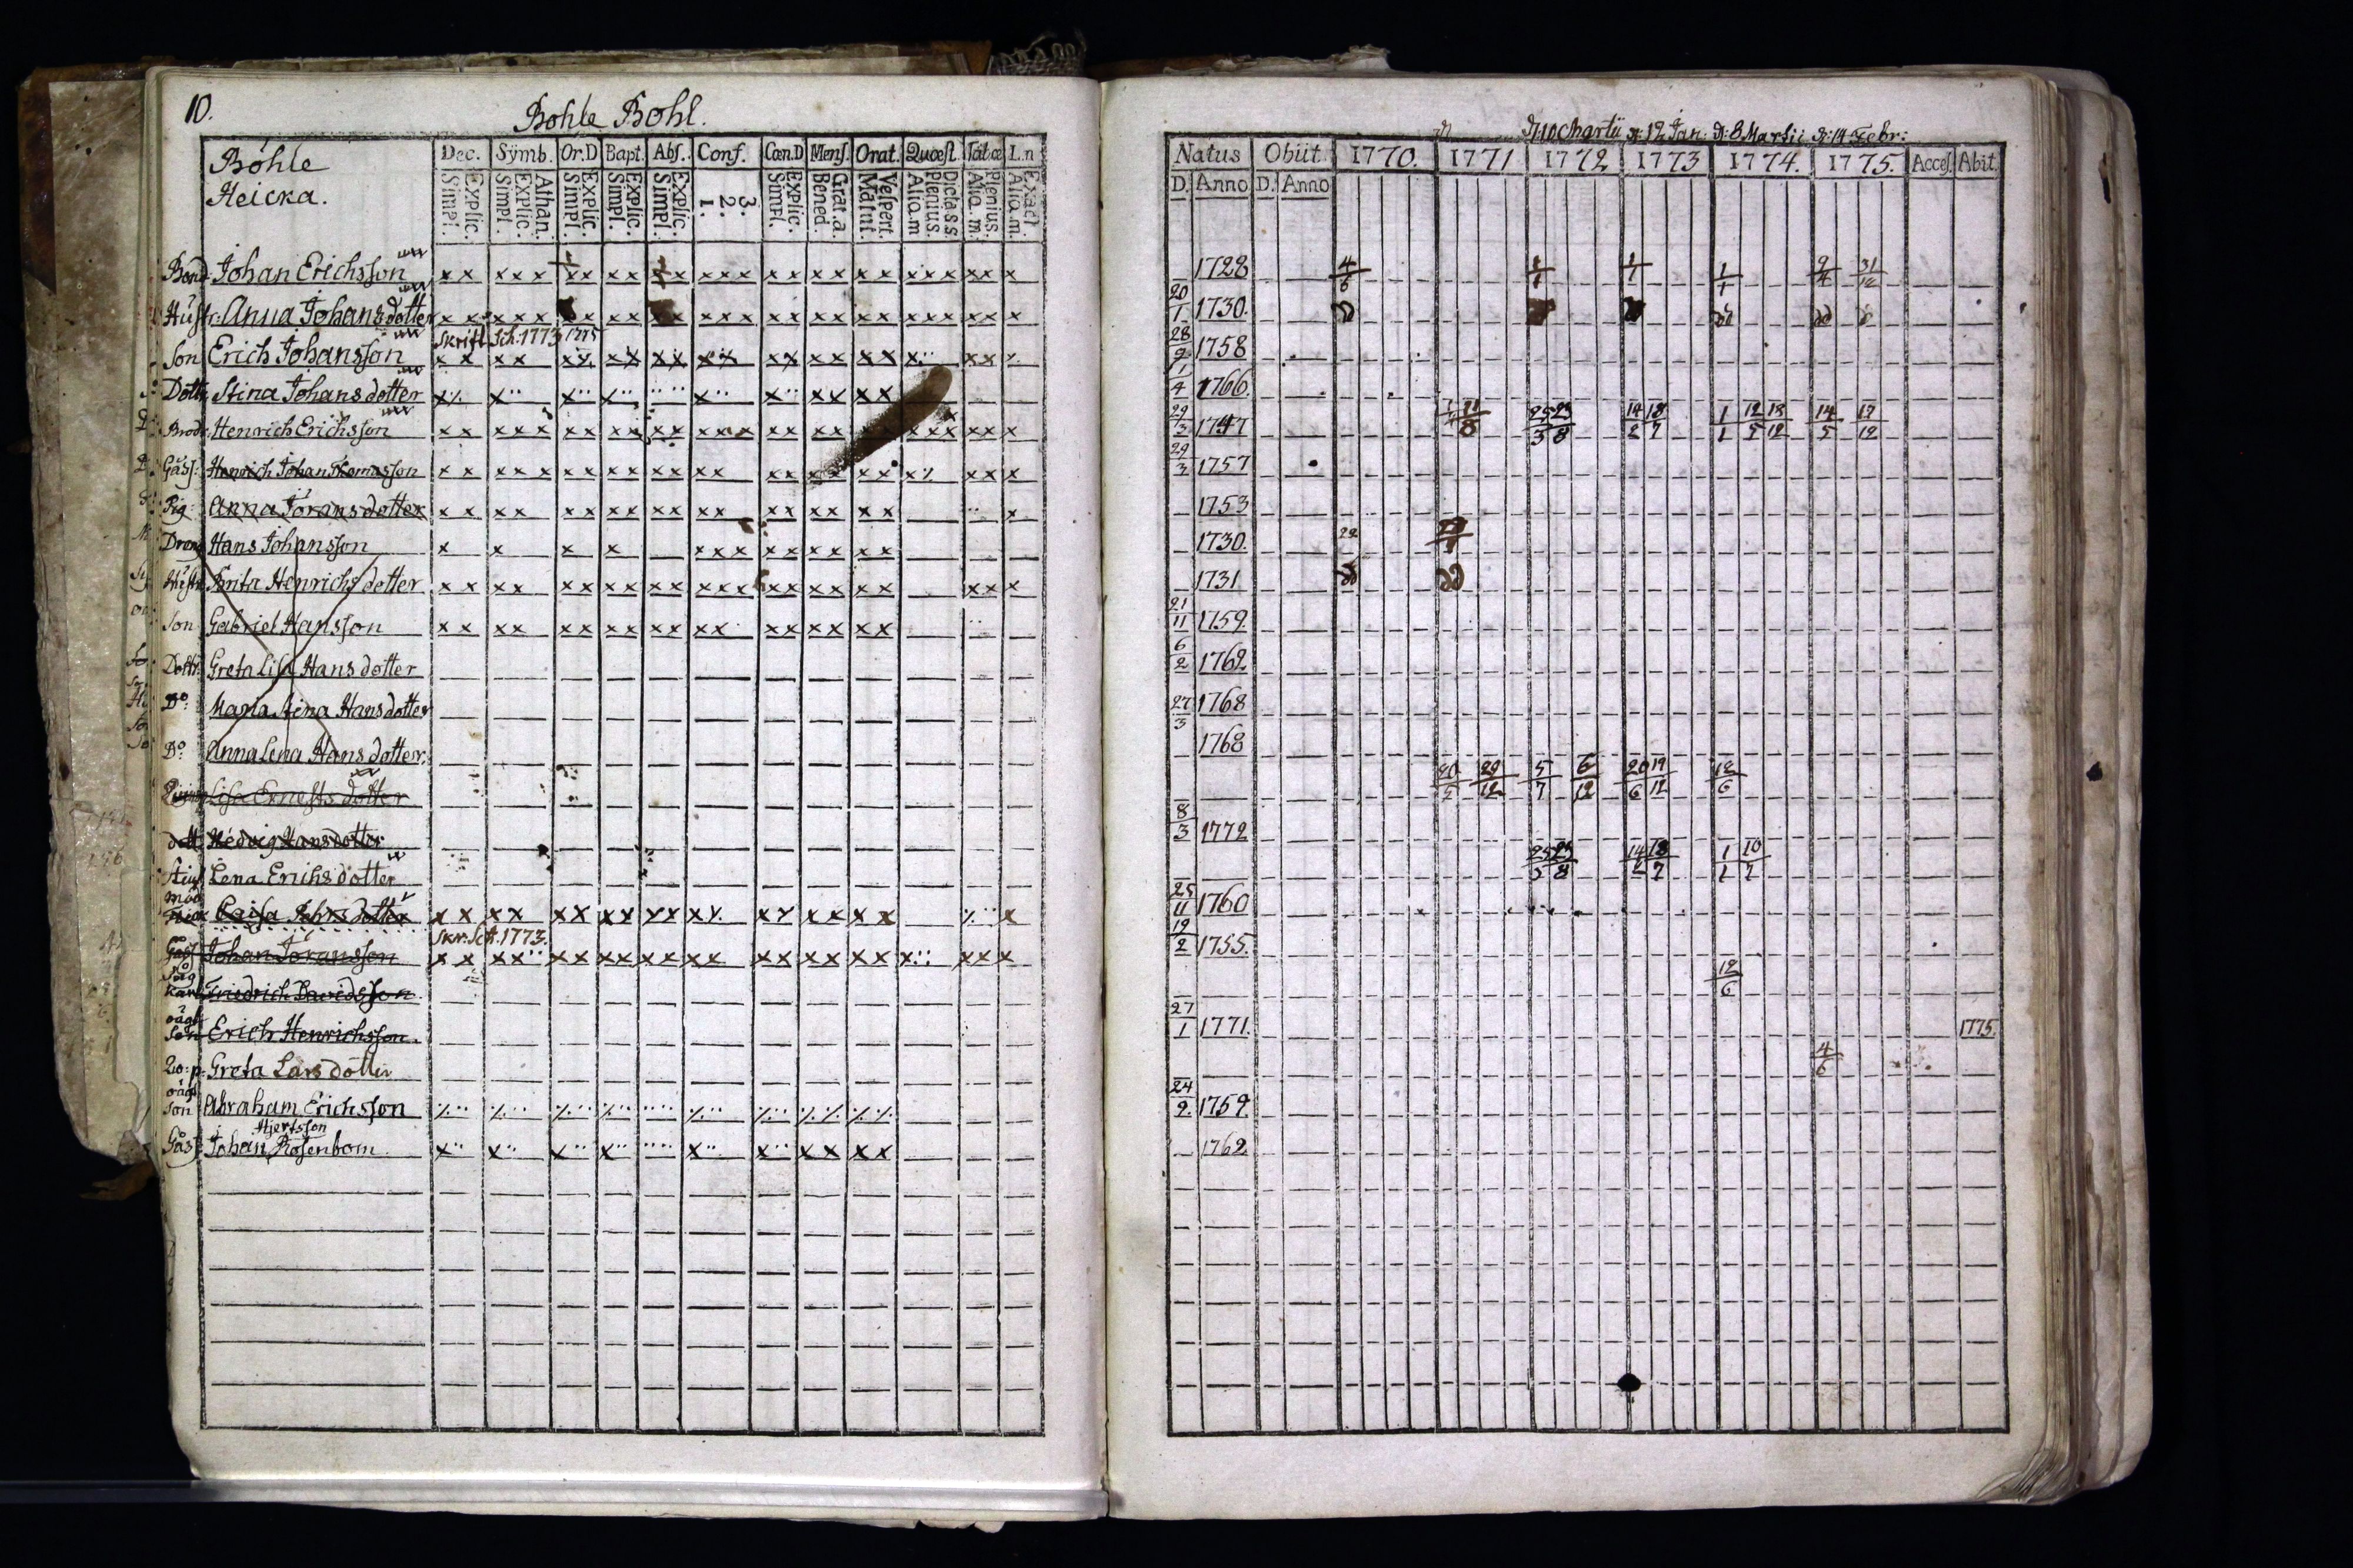 10.
Bohle Bohl.
Böhle
Heicka.
Dec. Sÿmb. Or.D Bapt. Abs. Conf. Cœn.D Mens. Orat. Quæst. Tab.œ L.n
Simpl. Explic. Simpl. Explic. Athan. Simpl. Explic. Simpl. Explic. Simpl. Explic. 1. 2. 3. Simpl. Explic. Bened. Grat.a. Matut. Vespert. Aliq.m Plenius. Dicta s.s. Aliq.m. Plenius. Aliq.m. Exact.
Bond. Johan Erichsson
Hustr: Anna Johansdotter
Skrift Sch: 1773 1775
Son Erich Johansson
Dottr. Stina Johansdotter
Brodr. Henrich Erichsson
Gåss: Henrich Johan Thomasson
Pig: Anna Joransdotter
Dreng Hans Johansson
Hustr. Brita Henrichsdotter
Son Gabriel Hansson
Dottr. Greta Lisa Hansdotter
Do: Maria Stina Hansdotter
Do: Anna Lena Hansdotter.
Lisa Ernestsdotter
dott Hedvig Hansdotter
Lena Erichsdotter
Caisa
Skr. Sch. 1773.
Gåss Johan Joransson
Friedrich Davidsson
oägt
Son Erich Henrichsson.
Greta Larsdotter
oägt
Son Abraham Erichsson
Hjertsson
Gåss: Johan Rosenbom
D: 10 Martii D: 12 Jan: D: 8 Martii D: 14 Febr:
Natus Obiit 1770. 1771 1772 1773 1774. 1775. Acces. Abit.
D. Anno D. Anno
1728 4/6 1/1 1/1 1/1 9/4 31/12
20/1 1730.
28/9 1758
1/4 1766.
29/3 1747 25/3 23/8 14/2 18/7 1/1 12/5 18/12 14/5 17/12
29/3 1757
1753
1730.
1731
21/11 1759
6/2 1762
27/3 1768
1768
29/12 5/7 6/12 20/6 19/12 12/6
8/3 1772
25/3 23/8 14/2 18/7 1/1 10/7
25/11 1760
19/2 1755.
12/6
27/1 1771. 1775.
4/6
24/9 1759
1762